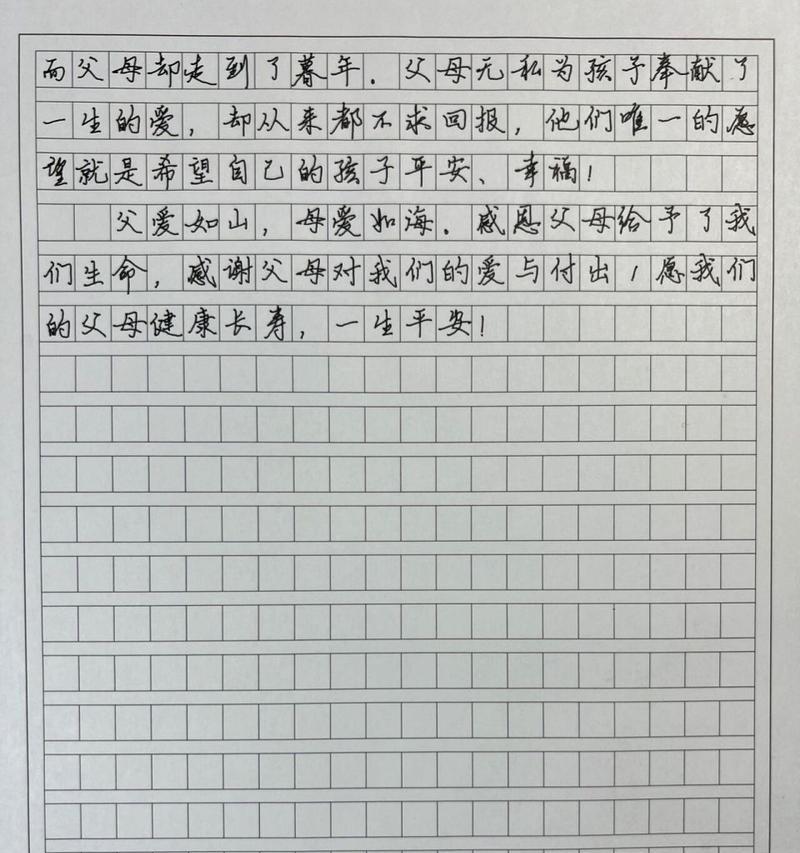 而父母却走到了暮年．父母无私为孩子奉献了
一生的爱，却从来都不求回报，他们唯一的愿
望就是希望自己的孩子平安、幸福！
父爱如山，母爱如海．感恩父母给予了我
们生命，感谢父母对我们的爱与付出！愿我们
的父母健康长寿，一生平安！